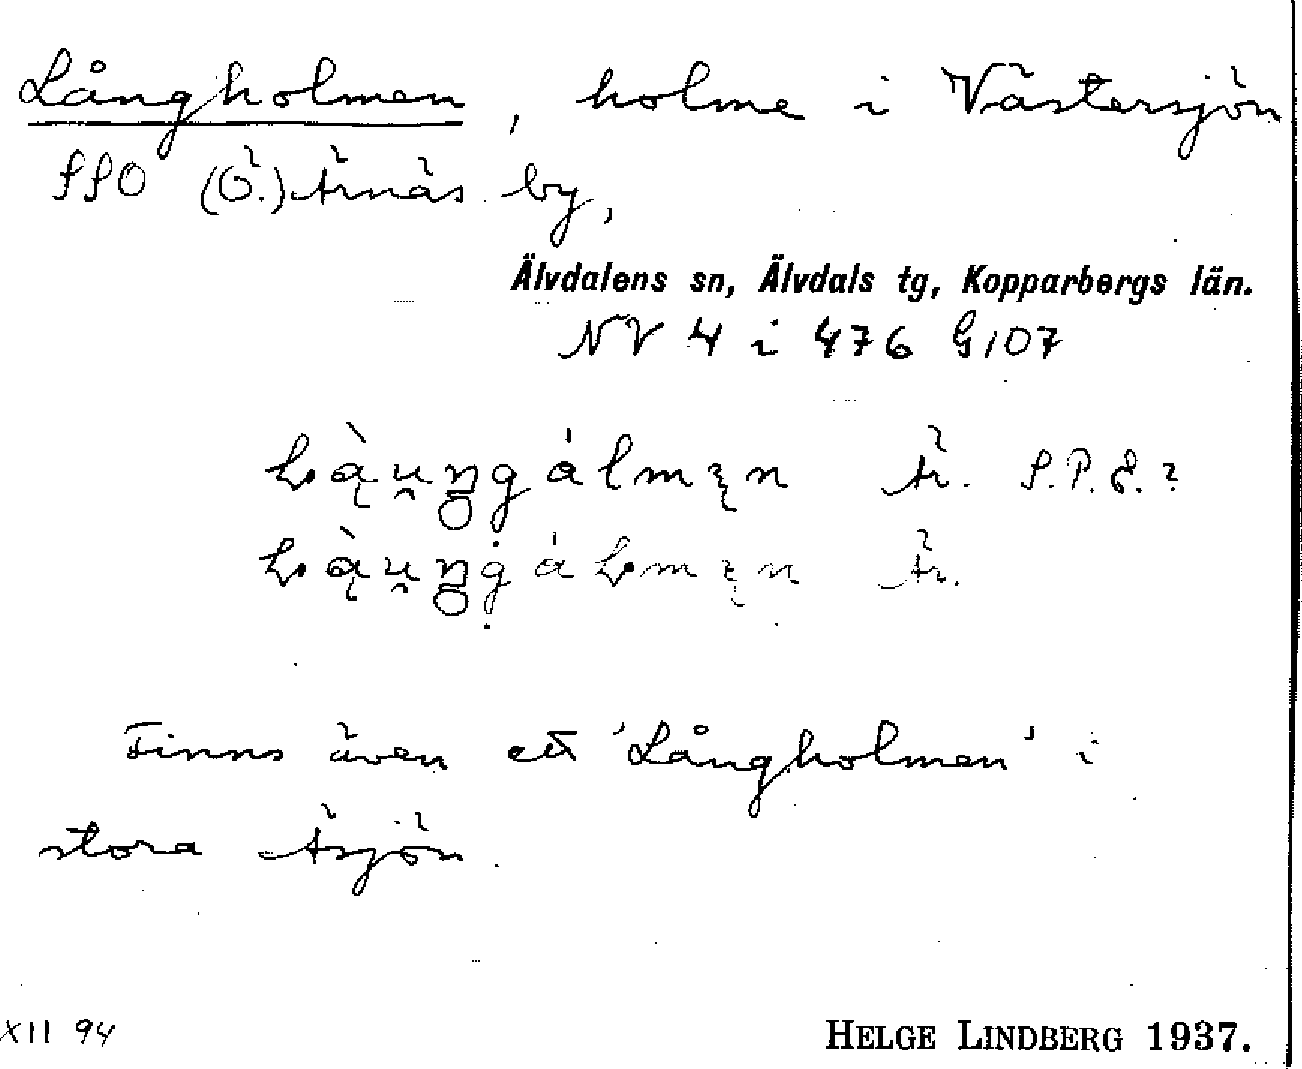 Långholmen, holme i Västersjön
SSO (Ö.) Ärnäs by,
Älvdalens sn, Älvdals tg, Kopparbergs län.
NV 4 i 476 G107
Är. S.P.E.?
Är.
Finns även ett 'Långholmen' i
stora Äsjön.
XII 94
HELGE LINDBERG 1937.